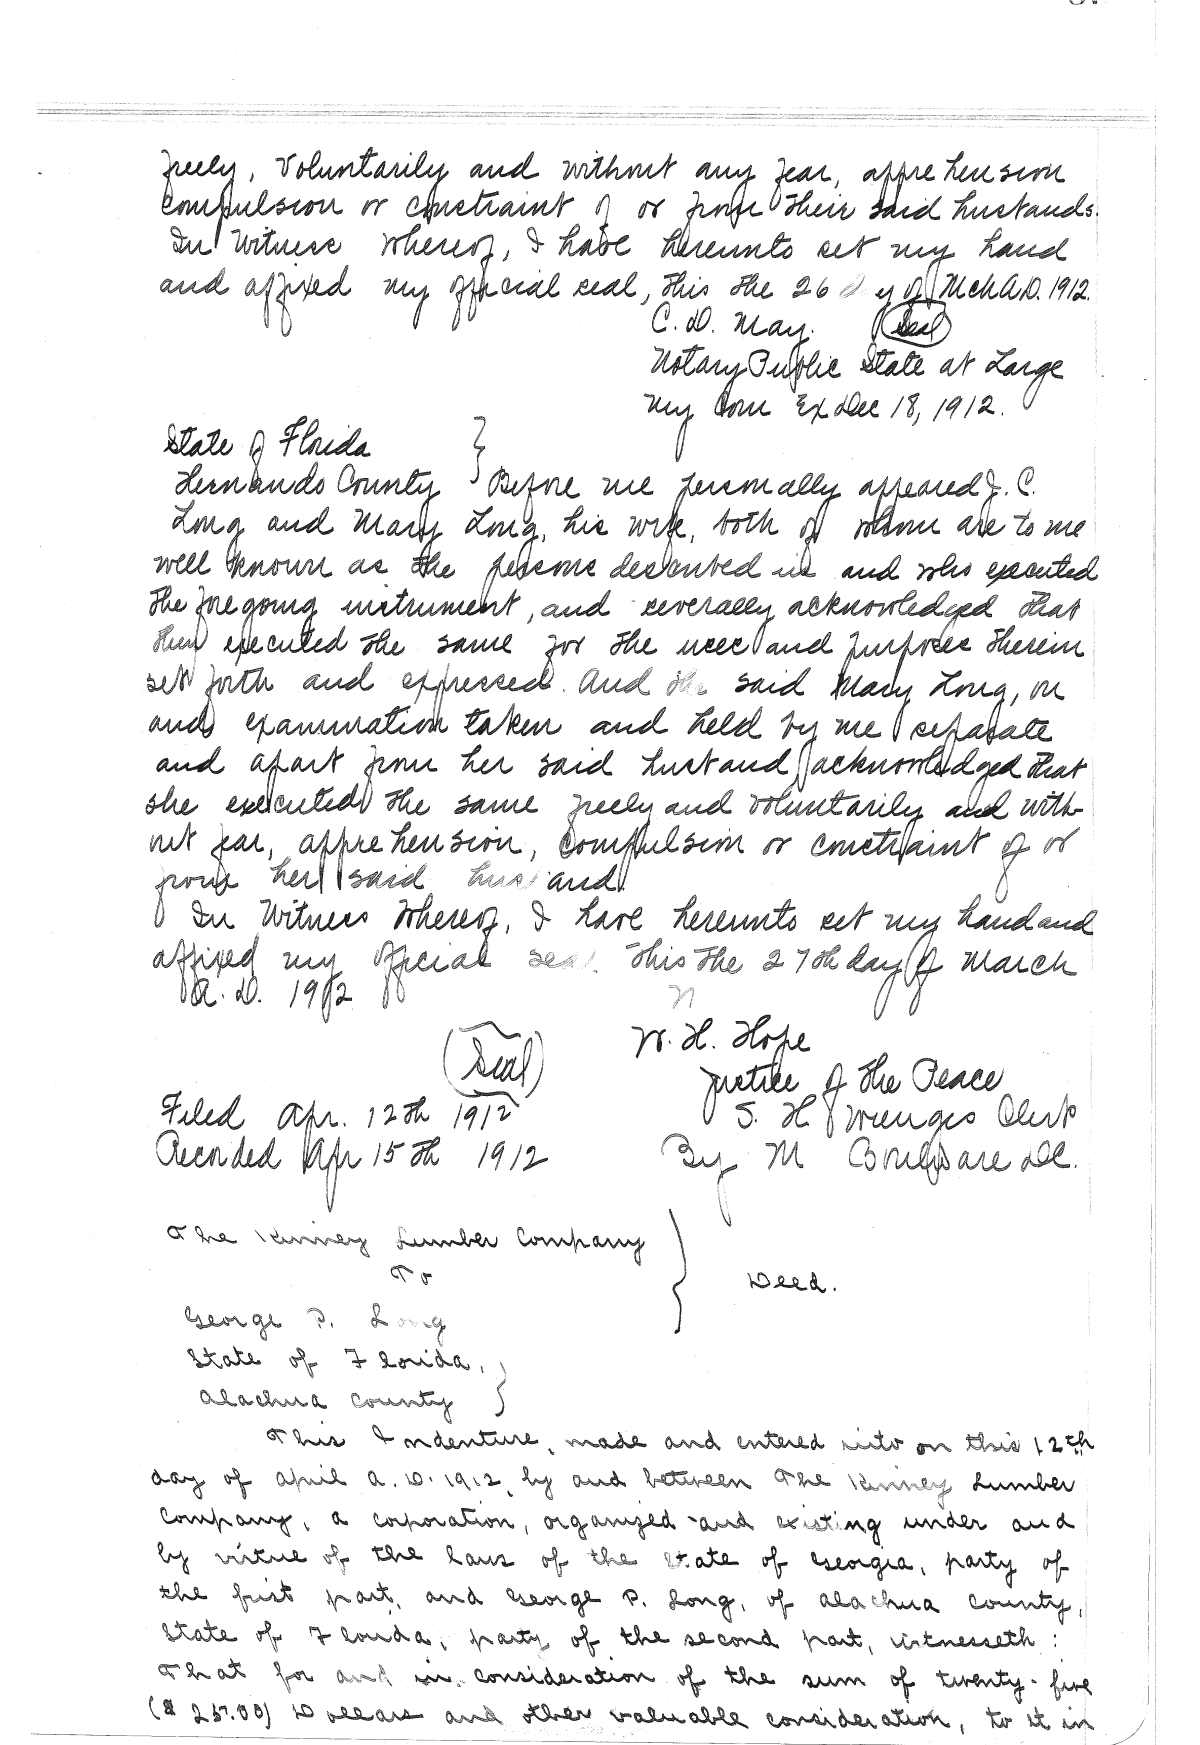 freely, voluntarily and without any fear, apprehension
compulsion or constraint of or from their said husbands.
In Witness Whereof, I have hereunto set my hand
and affixed my official seal, this the 26 day of Mch A.D. 1912.
C. D. May. (Seal)
Notary Public State at Large
My Com Ex Dec 18, 1912.
State of Florida }
Hernando County } Before me personally appeared J. C.
Long and Mary Long, his wife, both of whom are to me
well known as the persons described in and who executed
the foregoing instrument, and severally acknowledged that
they executed the same for the uses and purposes therein
set forth and expressed. And the said Mary Long, on
and examination taken and held by me separate
and apart from her said husband, acknowledged that
she executed the same freely and voluntarily and with-
out fear, apprehension, compulsion or constraint of or
from her said husband.
In Witness Whereof, I have hereunto set my hand and
affixed my official seal. This the 27th day of March
A. D. 1912
W. H. Hope
(Seal) Justice of the Peace
Filed Apr. 12th 1912 S. H. Wienges Clerk
Recorded Apr 15th 1912 By M D.C.
The Kinney Lumber Company
To } Deed.
George P. Long
State of Florida, }
Alachua County }
This Indenture, made and entered into on this 12th
day of April A. D. 1912, by and between The Kinney Lumber
Company, a corporation, organized and existing under and
by virtue of the laws of the State of Georgia, party of
the first part, and George P. Long, of Alachua County,
State of Florida, party of the second part, witnesseth:
That for and in consideration of the sum of twenty-five
($25.00) Dollars and other valuable consideration, to it in